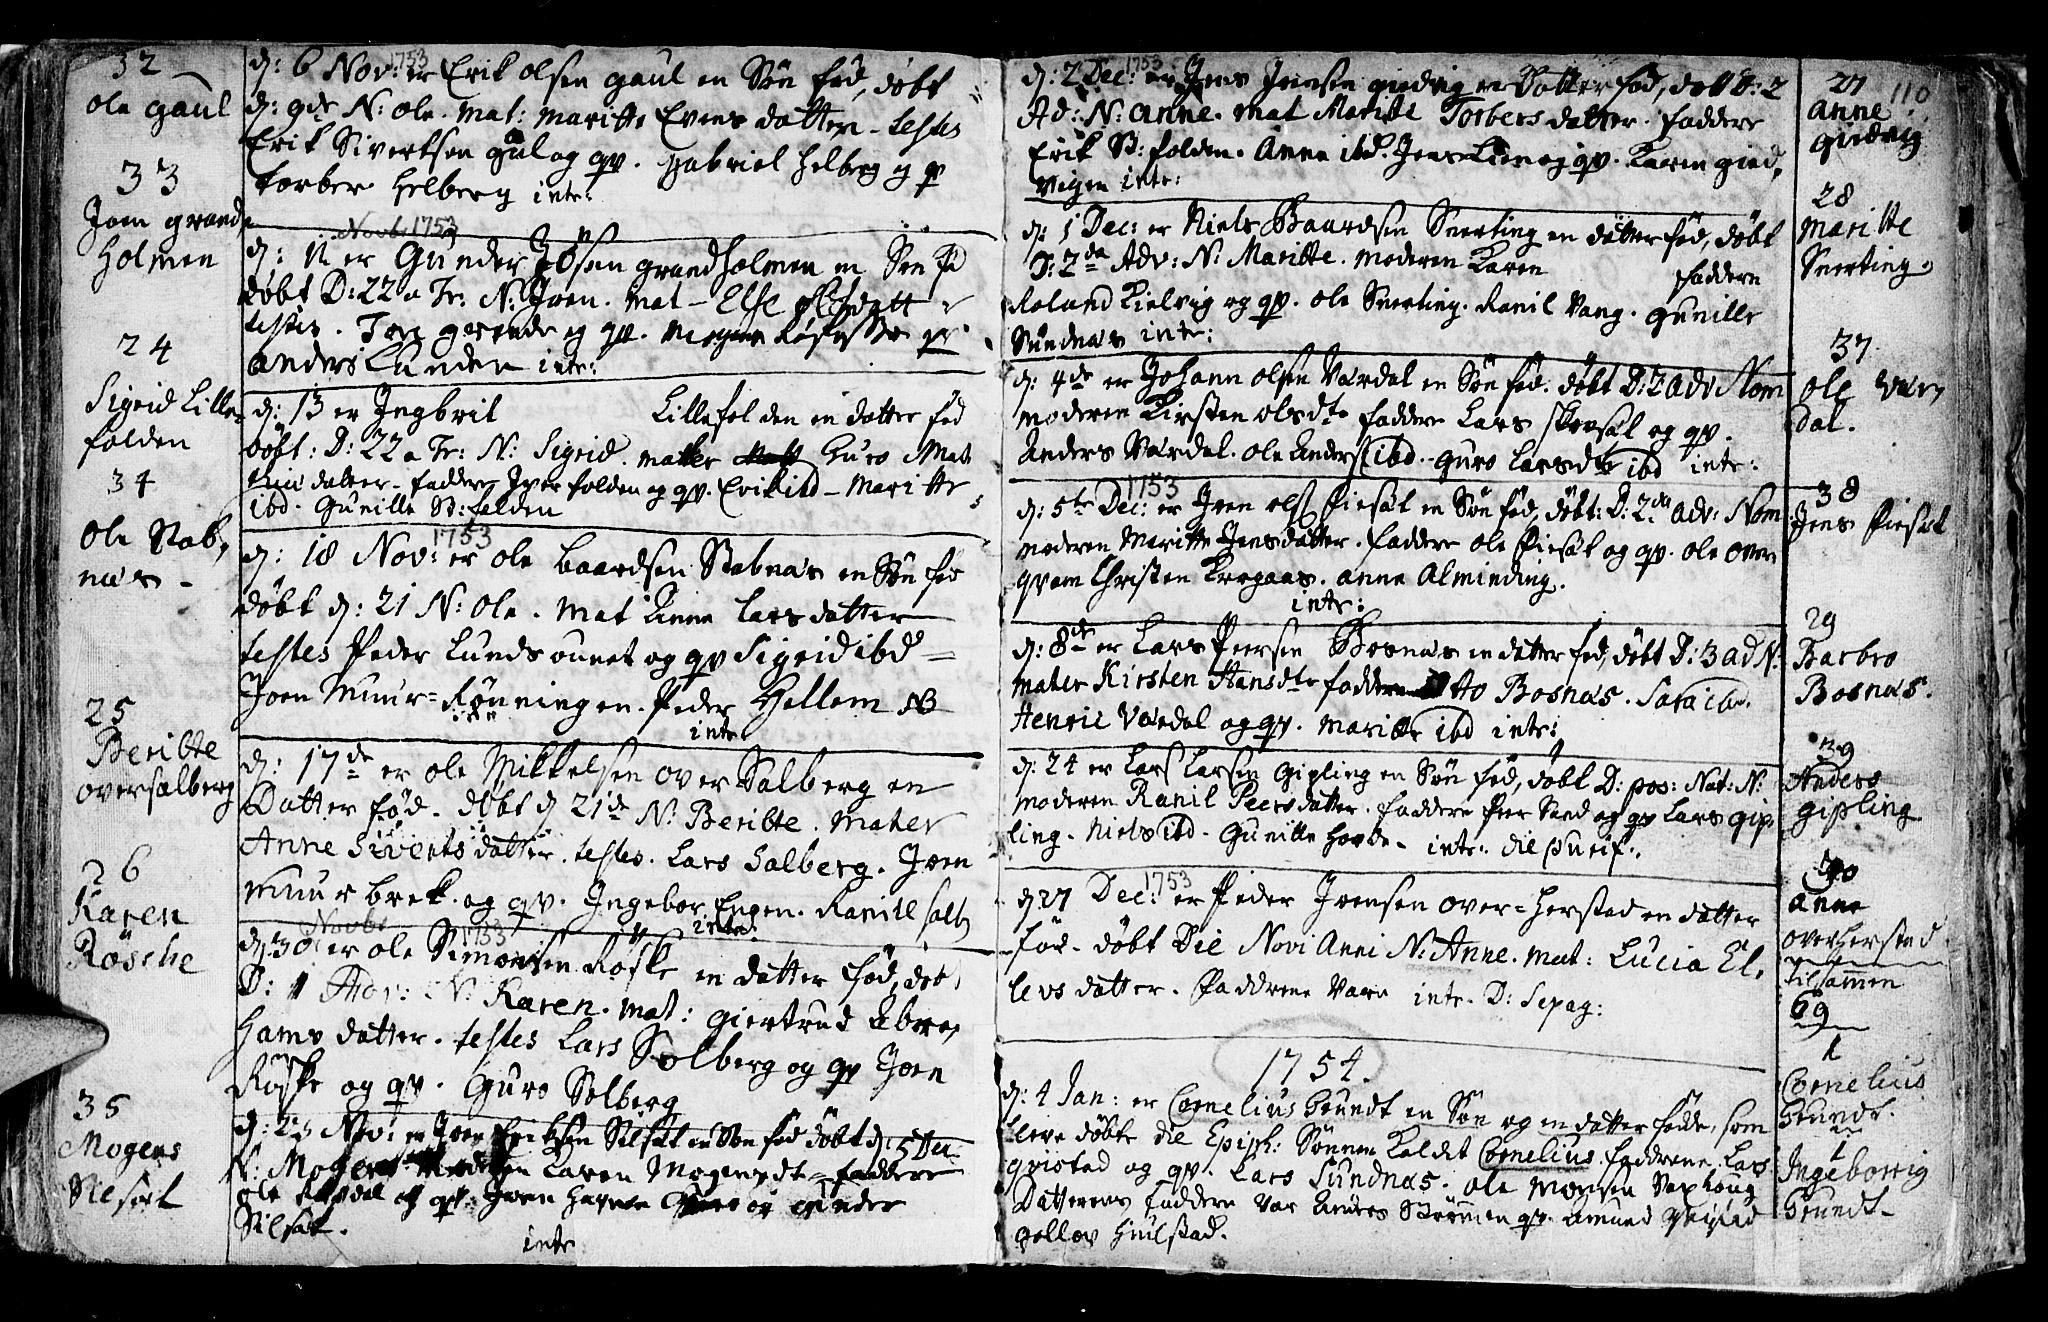 32
ole gaul
33
Joen grands
Holmen
24
Sigrid Lille
folden
34
Ole Stab,
næs -
25
Beritte
oversalberg
26
Karen
Røsche
35
Mogens
Silsæt
d: 6 Nov: 1753 er Erik olsen gaul en Søn fød, døbt
d: 9de N: ole. mat: maritte Evens datter - testes
Erik Sivertsen gaul og qv. gabriel Helberg og qv
torber Helberg intr:
Novb. 1753
d: 11 er Gunder grandholmen en Søn fød
døbt D: 22 a Tr: N: Joen. mat - Else datt
testes. Joen grande og qv.
anders Lunden intr:
d: 13 er Ingbrit Lillefolden en datter fød
døbt: D: 22 a Tr: N: Sigrid. mater Guro Mat
datter - faddere Iver folden og qv. Erik ibd - Maritte
ibd. Gunille St: folden
d: 18 Nov: 1753 er ole baardsen Stabnæs en Søn fød
døbt d: 21 N: Ole. mat Anne Larsdatter
testes Peder Lundsaunet og qv Sigrid ibd =
Joen Muur = Rønningen. Peder Hellem
intr
d: 17de er ole Mikkelsen over Salberg en
Datter fød. døbt d 21de N: Beritte. Mater
Anne Siverts datter. testes. Lars Salberg. Joen
Muur brek. og qv. Ingebor Engen. Ranill salb
intr:
Novbr 1753
d: 30 er ole Simonsen Røske en datter fød, døbt
D: 1 Adv: N: Karen. mat: giertrud Abra,
hams datter. testes Lars Solberg og qv Joen
Røske og qv. Guro Solberg
d: 23 Nov: er Joen Eriksen Silsæt en Søn fød døbt d: 5 Dec
N: Mogens Moderen Karen Mogensdt - faddere
ole og qv. Joen og Gunder
Silsæt. intr
d: 2 Dec: 1753 er Jens Jensen giedvig en Datter fød, døbt D: 2
Ad: N: Anne. mat Maritte Torbersdatter. faddere
Erik St: folden. Anne ibd. Jens Lien og qv. Karen gied,
vigen intr:
d: 1 Dec: er Niels Baardsen Snerting en datter fød, døbt
D: 2da Adv: N: Maritte. moderen Karen faddere
Roland Kielvig og qv. ole Snerting. Ranil Vang. gunille
Sundnæs intr:
d: 4de er Johann olsen Værdal en Søn fød. døbt D: 2 adv: Nom
moderen Kirsten olsdtr faddere Lars og qv.
Anders Værdal. ole Anders ibd. guro Larsdtr ibd intr:
d: 5te Dec: 1753 er Jven olsen Piesæt en Søn fød, døbt: D: 2da adv: Nom
moderen Maritte Jensdatter. faddere ole Piesæt og qv. ole over
qvam Christen Krogaas. anne Alminding.
intr:
d: 8de er Lars Peersen Bosnæs en datter fød, døbt D: 3 ad N:
mater Kirsten Hansdtr faddere Otto Bosnæs. Sara ibd.
Henric Værdal og qv. maritte ibd intr:
d: 24 er Lars Larsen gipling en Søn fød, døbt D: pos: Nat: N:
moderen Ranil Peersdatter. faddere Peer Sand og qv Lars gip
ling. Niels ibd. Gunille - intr: die purif:
d 27 Dec: 1753 er Peder Joensen over = herstad en datter
fød. døbt Die Novi Anni N: Anne. mat: Lucia El,
levs datter. Faddrene Vare intr. D: Sepag:
1754.
d: 4 Jan: er Cornelius Grundt en Søn og en datter fødde, som
bleve døbte die Epiph: Sønnen Kaldet Cornelius. faddrene Lars
qvistad og qv. Lars Sundnæs. ole monsen Saxhoug
Datterens faddere var Anders Strømmen qv. amund qvistad
gollov Huilstad.
110
27
anne
giedvig
28
Maritte
Snerting
37
ole Vær
dal.
38
Jens Piesæt
29
Barbro
Bosnæs.
39
Anders
gipling
30
anne
overherstad
tilsammen
69
1
Cornelius
Grundt.
1
Ingeborrig
Grundt.